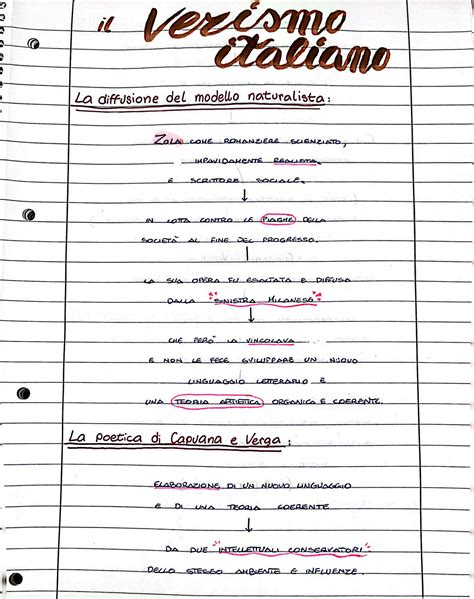 il verismo
italiano
La diffusione del modello naturalista:
ZOLA COME ROMANZIERE SCIENZIATO,
IMPAVIDAMENTE REALISTA,
E SCRITTORE SOCIALE.
IN LOTTA CONTRO LE PIAGHE DELLA
SOCIETÀ AL FINE DEL PROGRESSO.
LA SUA OPERA FU ESALTATA E DIFFUSA
DALLA "SINISTRA MILANESE"
CHE PERÒ LA VINCOLAVA
E NON LE FECE SVILUPPARE UN NUOVO
LINGUAGGIO LETTERARIO E
UNA TEORIA ARTISTICA ORGANICA E COERENTE.
La poetica di Capuana e Verga:
ELABORAZIONE DI UN NUOVO LINGUAGGIO
E DI UNA TEORIA COERENTE
DA DUE "INTELLETTUALI CONSERVATORI"
DELLO STESSO AMBIENTE E INFLUENZE.